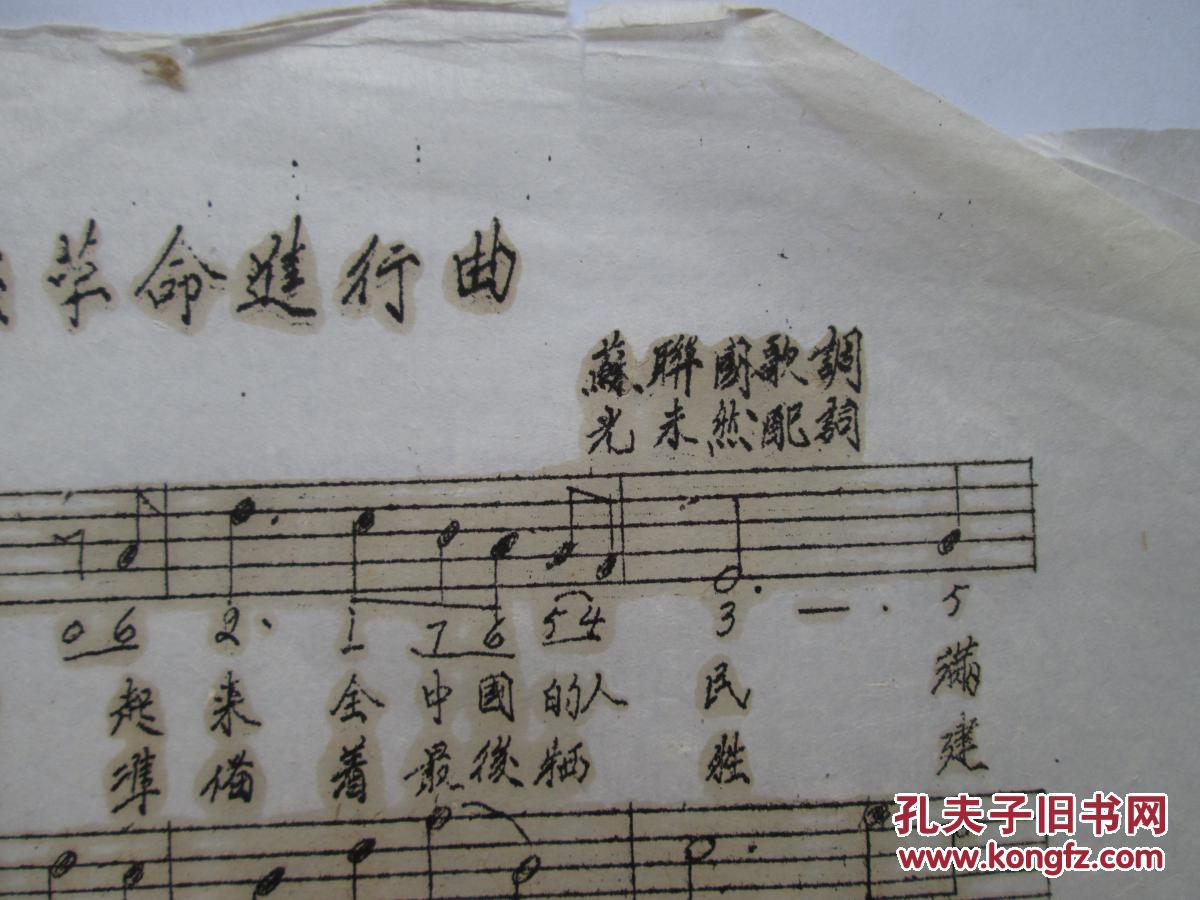 革命進行曲
蘇聯國歌調
光未然配詞
0 6 2. 1 7 6 5 4 3. — . 5
起来全中國的人民 滿
準備着最後牺牲 建
孔夫子旧书网
www.kongfz.com